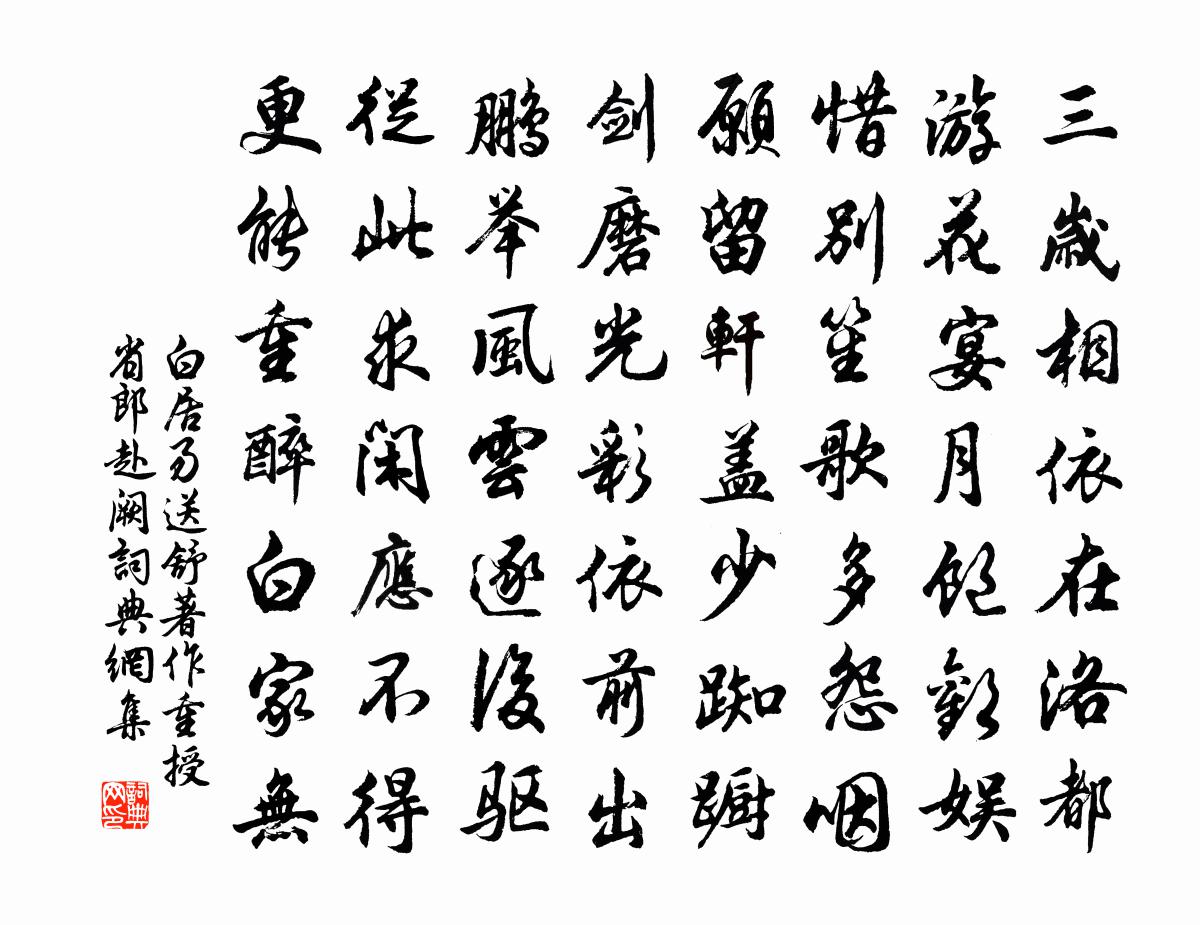 三歲相依在洛都
游花宴月飽歡娛
惜别笙歌多怨咽
願留軒蓋少踟躕
劍磨光彩依前出
鵬举風雲逐後驱
從此求閑應不得
更能重醉白家無
白居易送舒著作重授
省郎赴阙詞典網集
詞典
网印